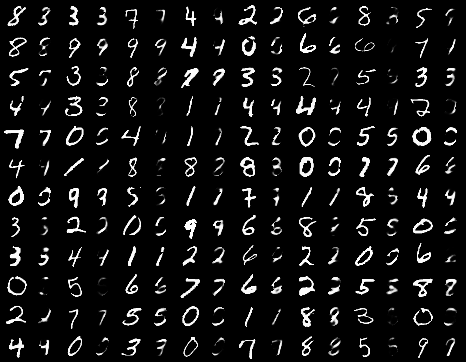 8 3 3 3 7 7 4 4 2 2 6 8 5
8 8 9 9 9 9 4 4 0 6 6 6 7 1
5 5 3 3 8 8 9 9 3 3 2 5 3 3
4 4 3 3 8 1 1 4 4 4 4 4 2
7 7 0 0 4 1 1 2 2 0 0 5 5 0 0
4 4 1 1 8 8 8 3 0 0 7 7 6 6
0 0 9 9 5 1 1 7 7 1 1 8 4 4
3 2 2 0 9 9 6 6 8 5 5 0
3 3 4 4 1 1 2 2 6 2 2 0 0 6
0 5 6 6 7 7 6 6 2 2 5 5 8 8
2 7 7 5 5 0 0 1 1 8 8 3 0 0
4 4 0 3 3 0 7 7 8 8 5 9 9